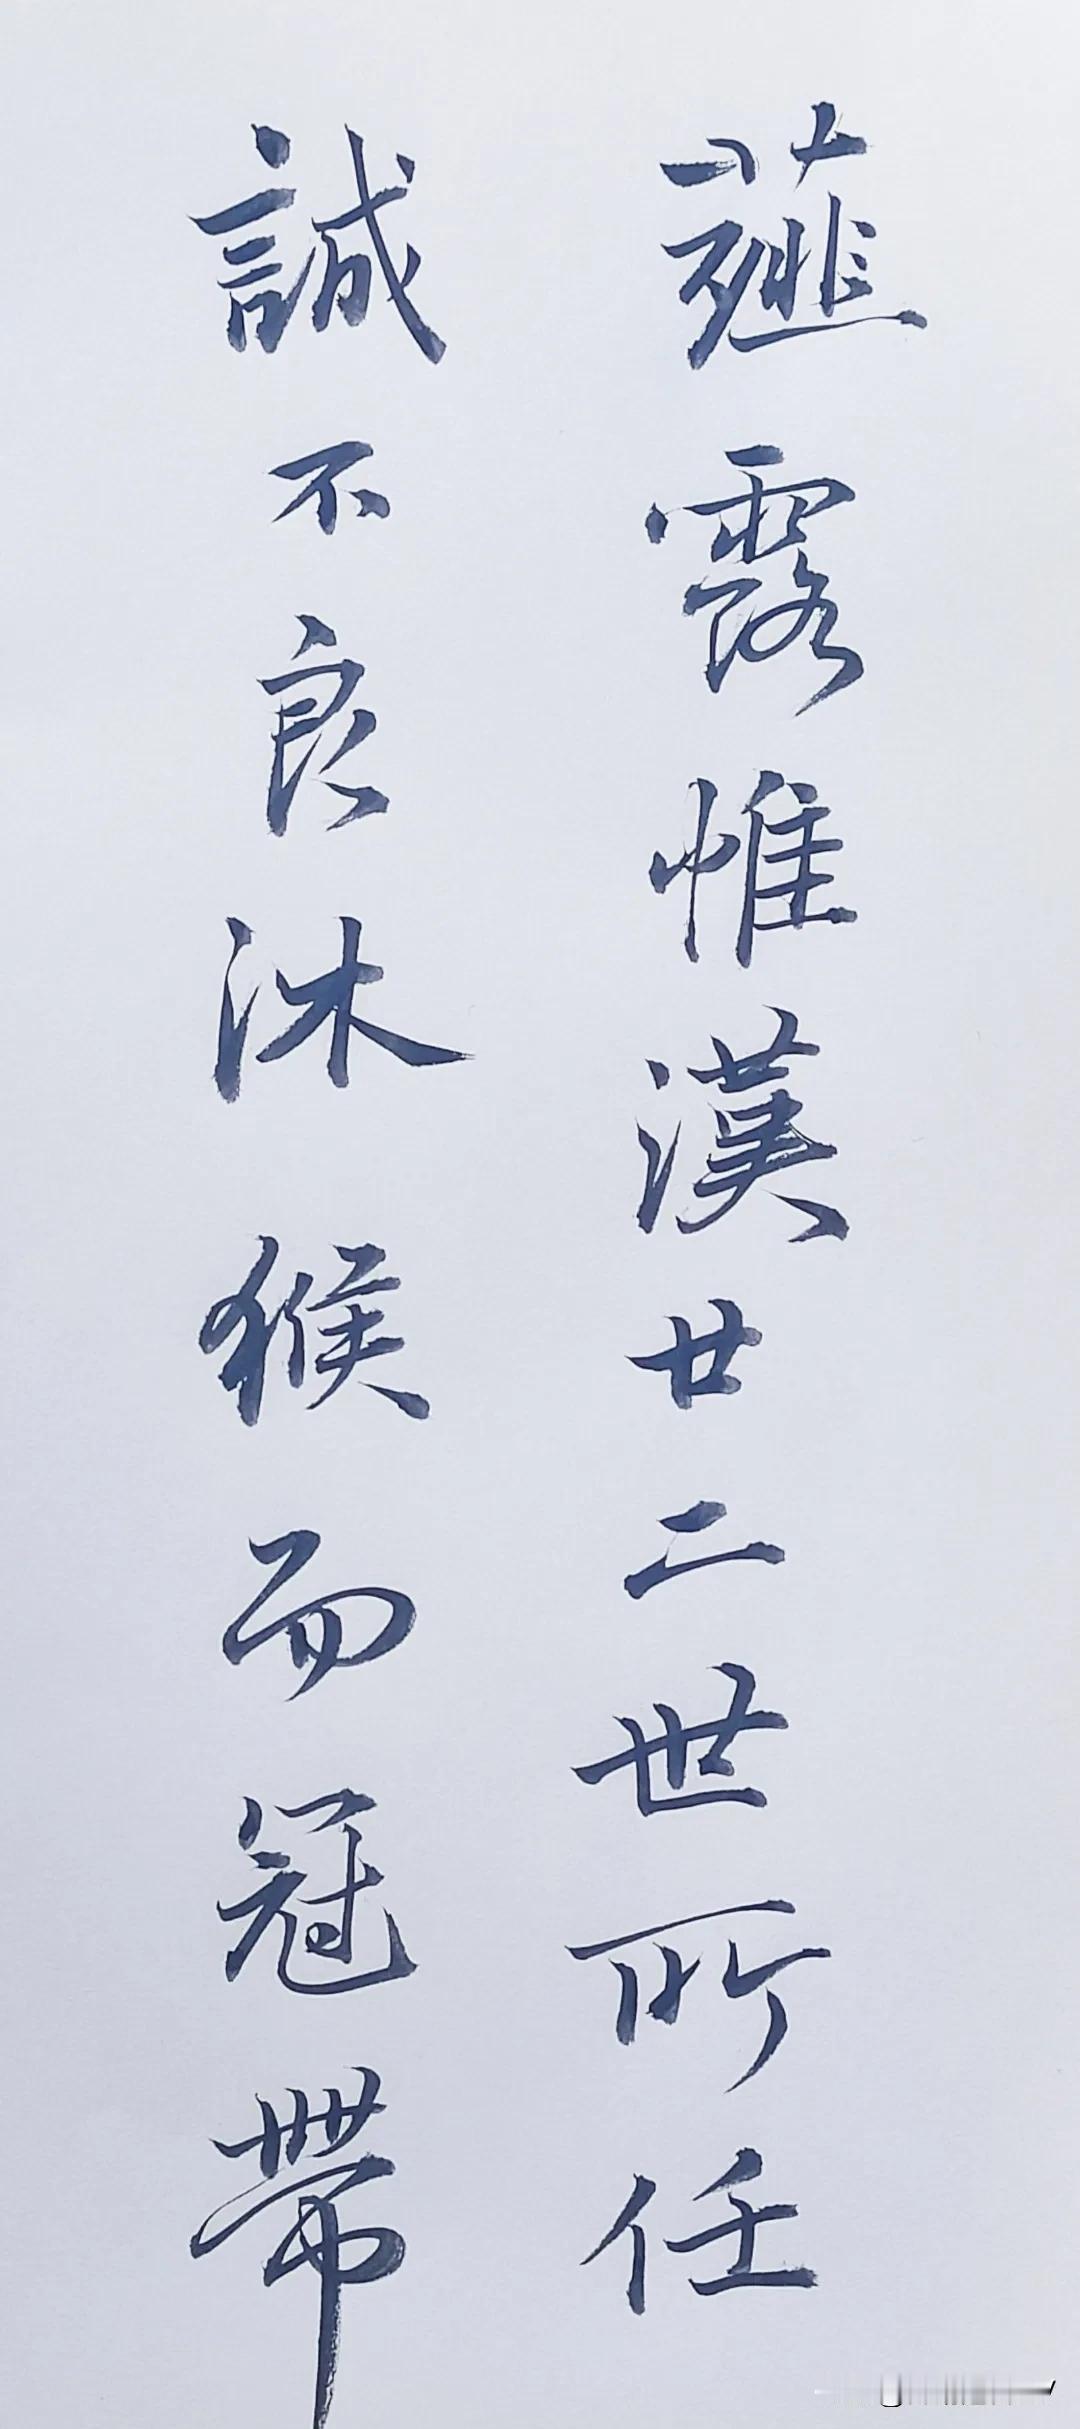 薤露惟漢廿二世所任
誠不良沐猴而冠帶